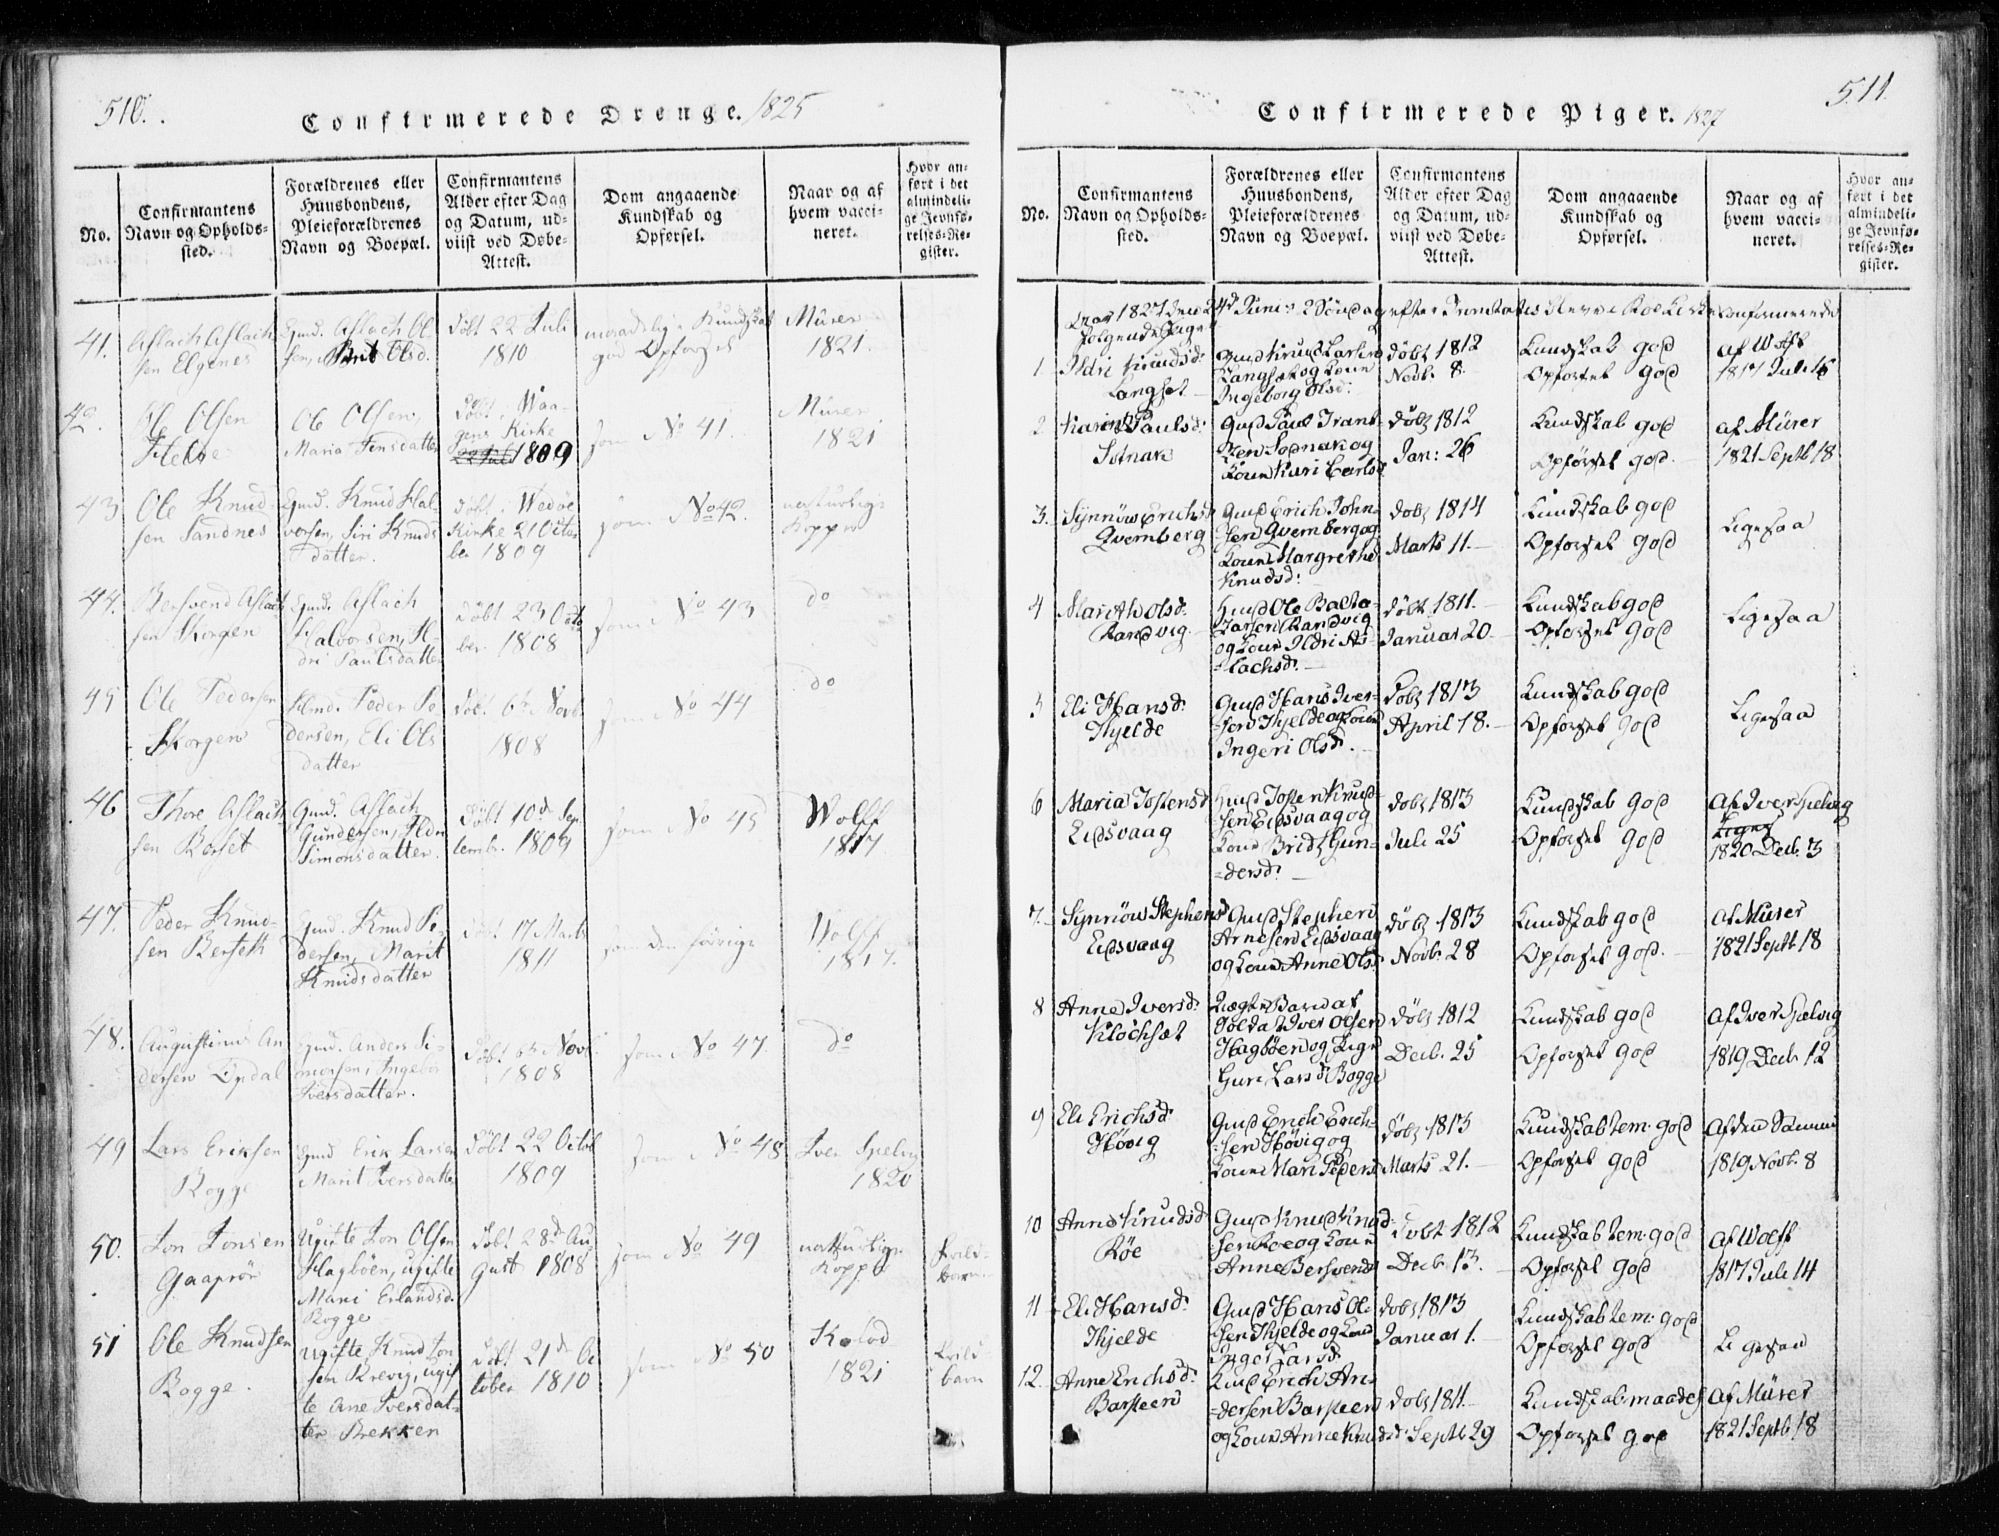 510.
Confirmerede Drenge. 1825
No.
Confirmantens
Navn og Opholds-
sted.
Forældrenes eller
Huusbondens,
Pleieforældrenes
Navn og Boepæl.
Confirmantens
Alder efter Dag
og Datum, ud-
viist ved Døbe-
Attest.
Dom angaaende
Kundskab og
Opførsel.
Naar og af
hvem vacci-
neret.
Hvor an-
ført i det
almindeli-
ge Jevnfø-
relses-Re-
gister.
41.
Aslach Aslach
sen Elgenes
Gmd. Aslach Ol
sen, Brit Olsd.
døbt 22 Juli
1810
maadelig Kundskab
god Opførsel
Mürer
1821.
42.
Ole Olsen
Ole Olsen,
Maria Finsdatter
døbt i Waa-
gens Kirke
1809
som No 41.
Mürer
1821
43
Ole Knud-
sen Sandnes
Gmd. Knud Hal-
vorsen, Siri Knuds
datter.
døbt i Wedøe
Kirke 21 Octo
ber 1809
som No 42.
naturlige
Kopper
44.
Bersvend Aslach
sen Skorgen
Gmd. Aslach
Halvorsen, Il-
dri Paulsdatter
døbt 23 Octo
ber 1808
som No 43
do
45
Ole Pedersen
Skorgen
Hmd. Peder Pe
dersen, Eli Ols
datter
døbt 6te Novb
1808
som No 44
do
46
Thore Aslach
sen Berset
Gmd. Aslach
Gundersen, Ildri
Simonsdatter.
døbt 10de Sep
tembr. 1809
som No 45
Wolff
1817
47.
Peder Knud-
sen Berseth
Gmd. Knud Pe-
dersen, Marit
Knudsdatter
døbt 17 Marts
1811
som den forrige
Wolff
1817.
48.
Augustinus An
dersen Opdal
Gmd. Anders Si-
monsen, Ingebor
Iversdatter.
døbt 6te Novb
1808
som No 47
do
49
Lars Eriksen
Bogge
Gmd Erik Larsen
Marit Iversdatter
døbt 22 Octob
1809
som No 48
Iver Spelvig
1820
50.
Jon Jonsen
Gaaprør
Ugifte Jon Olsen
Hagbøen, ugifte
Mari Erlandsd.
Bogge
døbt 28de Au
gust 1808
som No 49
naturlige
Kopper
51
Ole Knudsen
Bogge.
ugifte Knud Jon
sen Brevig, ugif
te Ane Iversdat-
ter Brekken
døbt 21de Oc
tober 1810
som No 50
Kolod
1821
barn
511.
Confirmerede Piger. 1827
No.
Confirmantens
Navn og Opholds-
sted.
Forældrenes eller
Huusbondens,
Pleieforældrenes
Navn og Boepæl.
Confirmantens
Alder efter Dag
og Datum, ud-
viist ved Døbe-
Attest.
Dom angaaende
Kundskab og
Opførsel.
Naar og af
hvem vacci-
neret.
Hvor an-
ført i det
almindeli-
ge Jevnfø-
relses-Re-
gister.
1827 den 24de Juni 2 Søndag efter Trinitatis Kirke confirmerede
følgende Piger
1
Ildri Knudsd:
Langset
Gmd Knud Larsen
Langset og Kone
Ingeborg Olsd:
døbt 1812
Novb. 8
Kundskab god
Opførsel god
af Wolff
1817 Juli 16
2
Karen Paulsd:
Sotnak
Gmd Paul Frant-
zen Sotnak og
Kone Kari Carlsd
døbt 1812
Jan: 26
Kundskab god
Opførsel god.
af Mürer
1821 Septb 18
3.
Synnøw Erichsd
Qvernberg
Gmd Erich John-
sen Qvernberg og
Kone Margrethe
Knudsd:
døbt 1814
Marts 11.
Kundskab god
Opførsel god
Ligesaa
4
Marith Olsd.
Randvig
Hmd Ole Balta-
zarsen Randvig
og Kone Ildri As-
-lachsd.
døbt 1811.
Januar 20.
Kundskab god
Opførsel god
Ligesaa
5
Eli Hansd.
Thjelde
Gmd Hans Iver-
-sen Thjelde og Kone
Ingeri Olsd.
døbt 1813
April 18.
Kundskab god
Opførsel god
Ligesaa
6
Maria Jostensd
Eidsvaag
Hmd Josten Knud-
sen Eidsvaag og
Kone Brit Gun-
-dersd.
døbt 1813
Juli 25
Kundskab god
Opførsel god
Af Iver Spelvig
1820 Decb. 3
7.
Synnøw Stephensd
Eidsvaag
Gmd Stephen
Arnesen Eidsvaag
og Kone Anne Olsd
døbt 1813
Novb. 28
Kundskab god
Opførsel god.
af Mürer
1821 Septb 18
8
Anne Iversd.
Klochset
Uægte Barn af
Soldat Iver Olsen
Hagbøen og Pige
Guri Larsd Bogge
døbt 1812
Decb. 25
Kundskab god
Opførsel god
Af Iver Spelvig
1819 Decb. 12
9
Eli Erichsd.
Høvig
Gmd Erich Erich-
-sen Høvig og
Kone Mari Pedersd
døbt 1813
Marts 21.
Kundskab tem: god
Opførsel god
Af den Samme
1819 Novb. 8
10
Anne Knudsd
Røe
Gmd Knud Knud-
-sen Røe og Kone
Anne Bersvends
døbt 1812
Decb. 13.
Kundskab tem: god
Opførsel god
Af Wolff
1817 Juli 14
11
Eli Hansd.
Thjelde
Gmd Hans Ol-
sen Thjelde og Kone
Inger Larsd
døbt 1813
Januar 1.
Kundskab tem: god
Opførsel god
Ligesaa
12.
Anne Erichsd.
Barsteen
Hmd Erich An-
-dersen Barsteen
og Kone Anne Knudsd
døbt 1811
Septb 29
Kundskab maadel
Opførsel god
Af Mürer
1821 Septb. 18